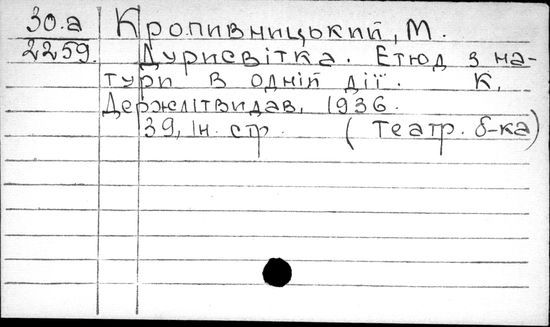 30.а Кропивницький, М.
2259. Дурисвітка. Етюд з на-
тури в одній дії. К,
Держлітвидав, 1936.
39, Ін. стр. (театр. б-ка)